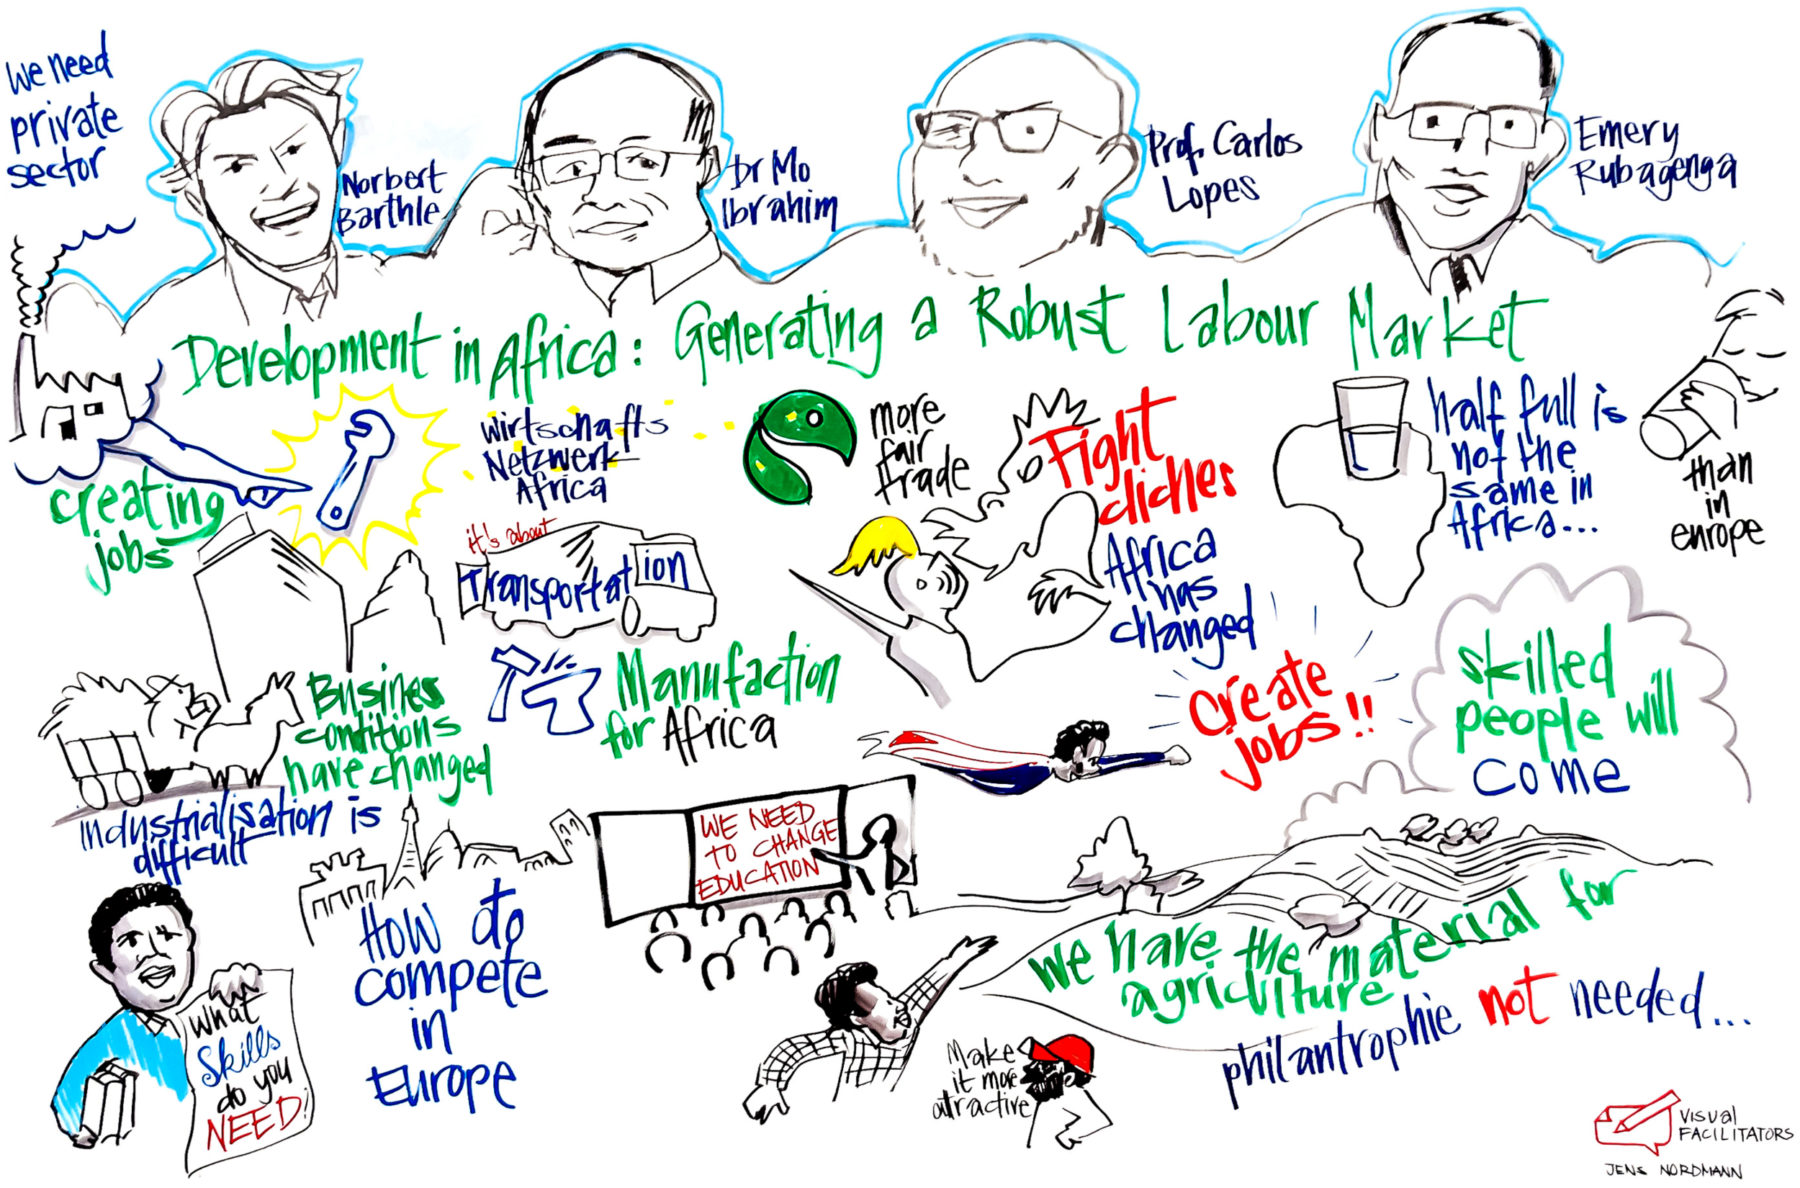 We need
private
sector
Norbert
Barthle
Dr Mo
Ibrahim
Prof. Carlos
Lopes
Emery
Rubagenga
Development in Africa: Generating a Robust Labour Market
creating
jobs
Wirtschafts
Netzwerk
Africa
more
fair
trade
Fight
cliches
Africa
has
changed
half full is
not the
same in
Africa...
than
in
europe
it's about
Transportation
Business
conditions
have changed
Industrialisation is
difficult
Manufaction
for Africa
Create
jobs!!
skilled
people will
come
WE NEED
TO CHANGE
EDUCATION
How to
compete
in
Europe
What
Skills
do you
NEED!
We have the material for
agriculture
philantrophie not needed...
Make
it more
attractive
VISUAL
FACILITATORS
JENS NORDMANN